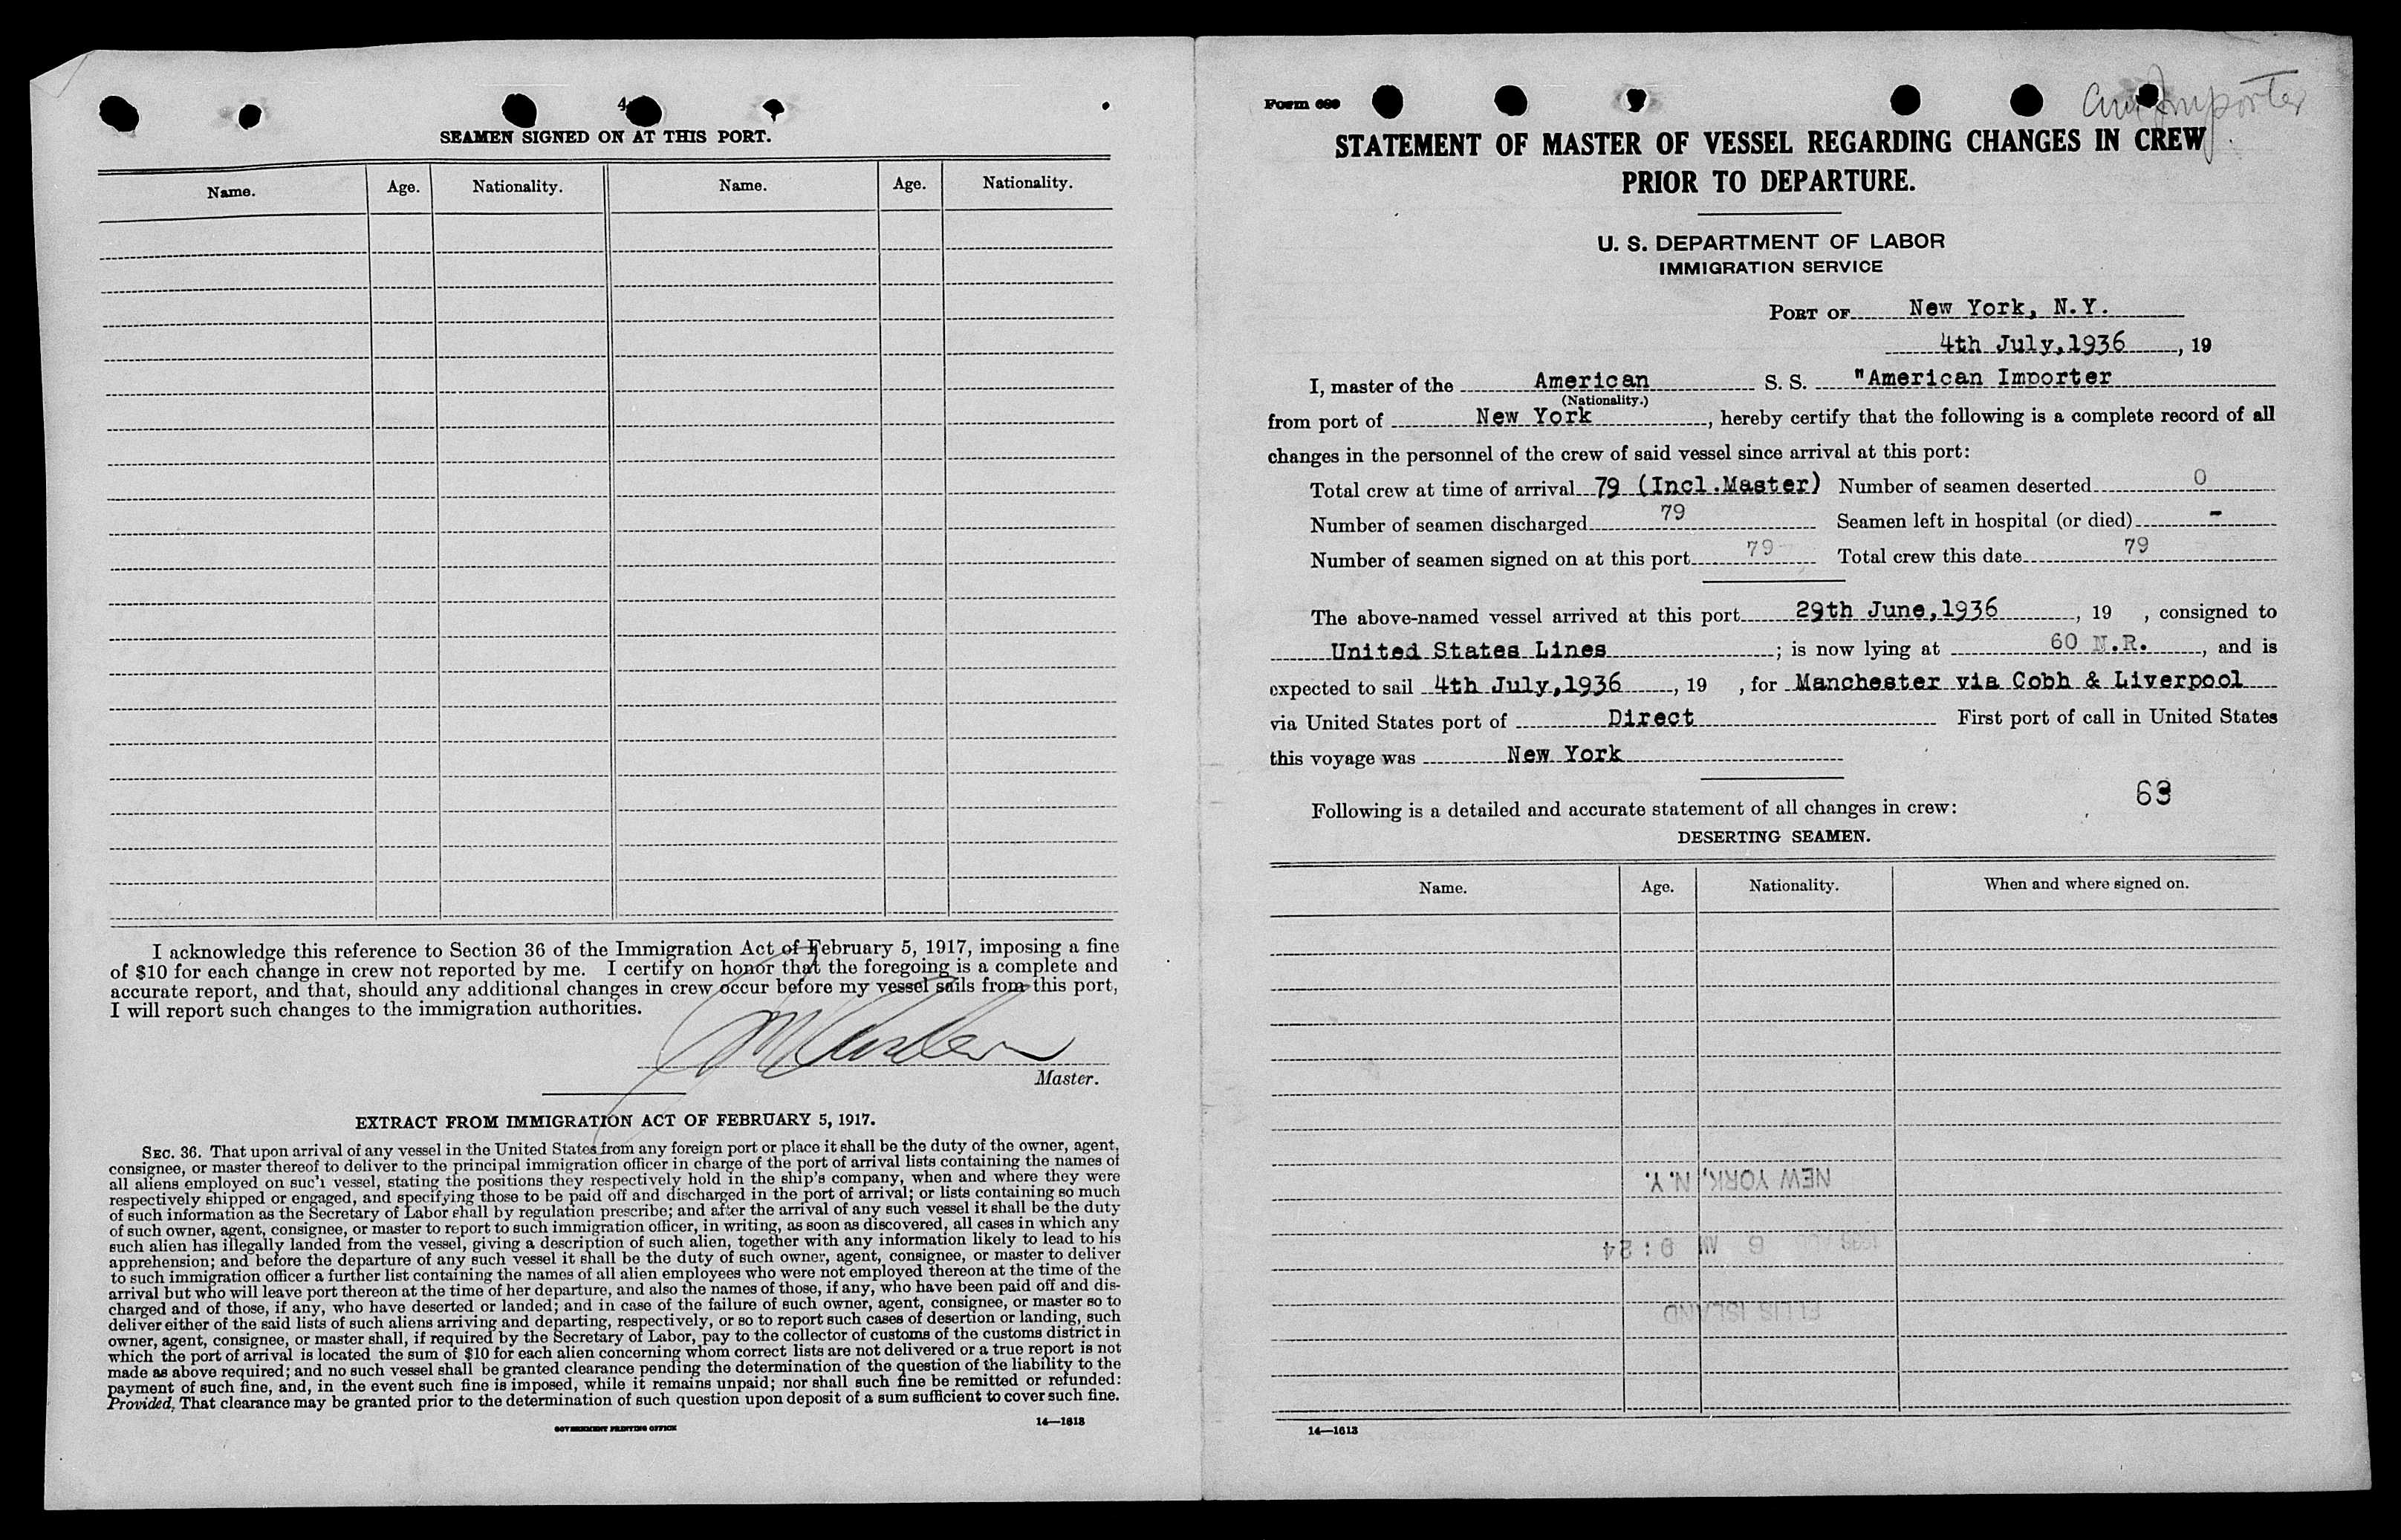 4
SEAMEN SIGNED ON AT THIS PORT.
Name. Age. Nationality. Name. Age. Nationality.
I acknowledge this reference to Section 36 of the Immigration Act of February 5, 1917, imposing a fine
of $10 for each change in crew not reported by me. I certify on honor that the foregoing is a complete and
accurate report, and that, should any additional changes in crew occur before my vessel sails from this port,
I will report such changes to the immigration authorities.
Master.
EXTRACT FROM IMMIGRATION ACT OF FEBRUARY 5, 1917.
SEC. 36. That upon arrival of any vessel in the United States from any foreign port or place it shall be the duty of the owner, agent,
consignee, or master thereof to deliver to the principal immigration officer in charge of the port of arrival lists containing the names of
all aliens employed on such vessel, stating the positions they respectively hold in the ship's company, when and where they were
respectively shipped or engaged, and specifying those to be paid off and discharged in the port of arrival; or lists containing so much
of such information as the Secretary of Labor shall by regulation prescribe; and after the arrival of any such vessel it shall be the duty
of such owner, agent, consignee, or master to report to such immigration officer, in writing, as soon as discovered, all cases in which any
such alien has illegally landed from the vessel, giving a description of such alien, together with any information likely to lead to his
apprehension; and before the departure of any such vessel it shall be the duty of such owner, agent, consignee, or master to deliver
to such immigration officer a further list containing the names of all alien employees who were not employed thereon at the time of the
arrival but who will leave port thereon at the time of her departure, and also the names of those, if any, who have been paid off and dis-
charged and of those, if any, who have deserted or landed; and in case of the failure of such owner, agent, consignee, or master so to
deliver either of the said lists of such aliens arriving and departing, respectively, or so to report such cases of desertion or landing, such
owner, agent, consignee, or master shall, if required by the Secretary of Labor, pay to the collector of customs of the customs district in
which the port of arrival is located the sum of $10 for each alien concerning whom correct lists are not delivered or a true report is not
made as above required; and no such vessel shall be granted clearance pending the determination of the question of the liability to the
payment of such fine, and, in the event such fine is imposed, while it remains unpaid; nor shall such fine be remitted or refunded:
Provided, That clearance may be granted prior to the determination of such question upon deposit of a sum sufficient to cover such fine.
GOVERNMENT PRINTING OFFICE 14—1613
Form 689
Am Importer
STATEMENT OF MASTER OF VESSEL REGARDING CHANGES IN CREW
PRIOR TO DEPARTURE.
U. S. DEPARTMENT OF LABOR
IMMIGRATION SERVICE
PORT OF New York, N.Y.
4th July,1936, 19
I, master of the American S. S. "American Importer
(Nationality.)
from port of New York, hereby certify that the following is a complete record of all
changes in the personnel of the crew of said vessel since arrival at this port:
Total crew at time of arrival 79 (Incl.Master) Number of seamen deserted 0
Number of seamen discharged 79 Seamen left in hospital (or died) -
Number of seamen signed on at this port 79 Total crew this date 79
The above-named vessel arrived at this port 29th June,1936, 19 , consigned to
United States Lines; is now lying at 60 N.R., and is
expected to sail 4th July,1936, 19 , for Manchester via Cobh & Liverpool
via United States port of Direct First port of call in United States
this voyage was New York
63
Following is a detailed and accurate statement of all changes in crew:
DESERTING SEAMEN.
Name. Age. Nationality. When and where signed on.
NEW YORK, N.Y.
ELLIS ISLAND
14—1613